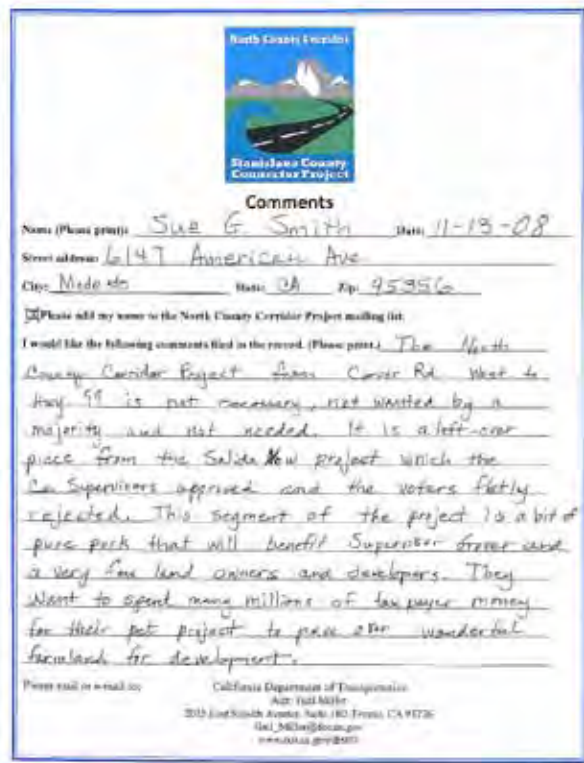 North County Corridor
Stanislaus County
Connector Project
Comments
Name (Please print): Sue G. Smith Date: 11-13-08
Street address: 6147 American Ave
City: Modesto State: CA Zip: 95356
Please add my name to the North County Corridor Project mailing list.
I would like the following comments filed in the record. (Please print.) The North
County Corridor Project from Carver Rd. West to
Hwy 99 is not necessary, not wanted by a
majority and not needed. It is a left-over
piece from the Salida Now project which the
Co. Supervisors approved and the voters flatly
rejected. This segment of the project is a bit of
pure pork that will benefit Supervisor Grover and
a very few land owners and developers. They
want to spend many millions of tax payer money
for their pet project to pave over wonderful
farmland for development.
Please mail or e-mail to: California Department of Transportation
Attn: Gail Miller
2015 East Shields Avenue, Suite 100 Fresno, CA 93726
Gail_Miller@dot.ca.gov